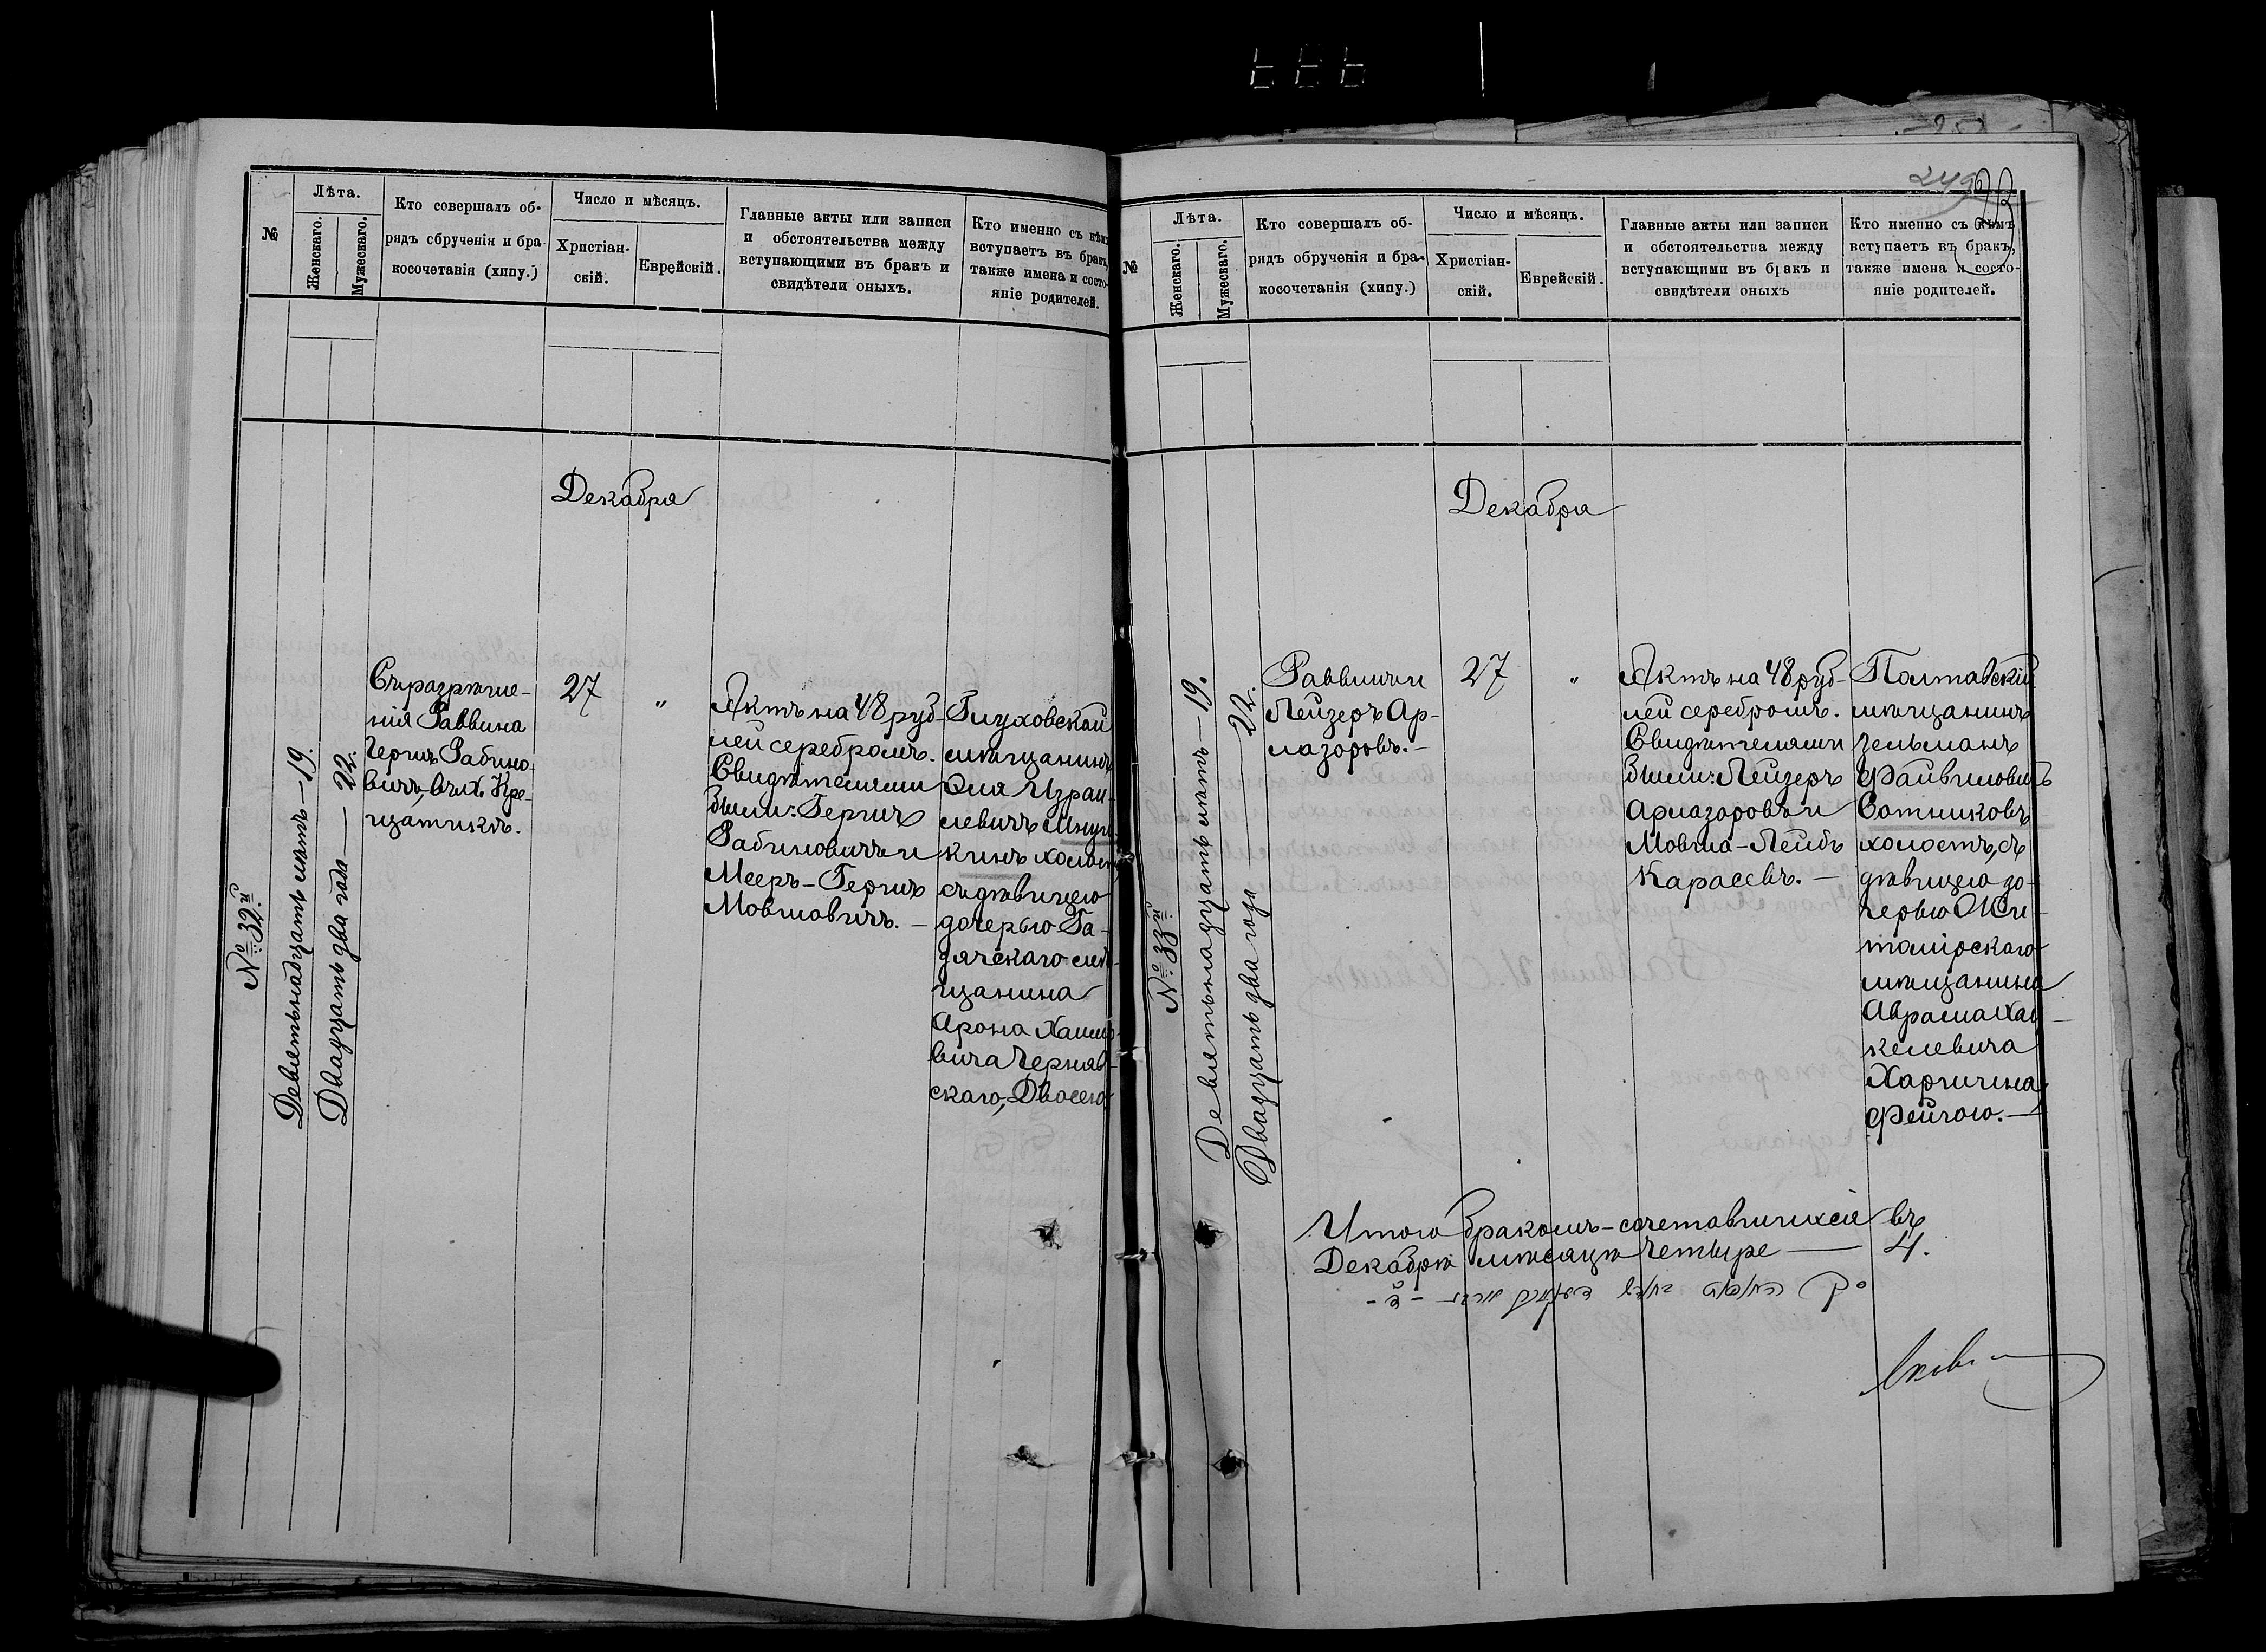 №
Лѣта.
Женскаго.
Мужескаго.
Кто совершалъ об-
рядъ обрученія и бра-
косочетанія (хипу.)
Число и мѣсяцъ.
Христіан-
скій.
Еврейскій.
Главные акты или записи
и обстоятельства между
вступающими въ бракъ и
свидѣтели оныхъ.
Кто именно съ кѣмъ
вступаетъ въ бракъ,
также имена и состо-
яніе родителей.
Декабря
№ 32й
Девятьнадцать лѣтъ — 19.
Двадцать два года — 22.
Съ разрѣше-
нія Раввина
Герша Рабино
вичъ, въ х. Кре-
щатикъ.
27
"
Актъ на 48 руб-
лей серебромъ.
Свидѣтелями
были: Гершъ
Рабиновичъ и
Мееръ-Гершъ
Мовшовичъ. —
Глуховской
мѣщанинъ
Эля Израи-
левичъ
кинъ холостъ
съ дѣвицею
дочерью Га-
дячскаго мѣ-
щанина
Арона Хаимо
вича Черняв-
скаго, Двосею
249
№
Лѣта.
Женскаго.
Мужескаго.
Кто совершалъ об-
рядъ обрученія и бра-
косочетанія (хипу.)
Число и мѣсяцъ.
Христіан-
скій.
Еврейскій.
Главные акты или записи
и обстоятельства между
вступающими въ бракъ и
свидѣтели оныхъ
Кто именно съ кѣмъ
вступаетъ въ бракъ,
также имена и состо-
яніе родителей.
Декабря
№ 33й
Девятьнадцать лѣтъ — 19.
Двадцать два года — 22.
Раввинъ
Лейзеръ Ар-
лазоровъ. —
27
"
Актъ на 48 руб-
лей серебромъ.
Свидѣтелями
были: Лейзеръ
Арлазоровъ и
Мовша-Лейбъ
Карасевъ. —
Полтавскій
мѣщанинъ
Зельманъ
Файвишовичъ
Сотниковъ
холостъ, съ
дѣвицею до-
черью Жи-
томірскаго
мѣщанина
Аврама Хас
келевича
Харшина,
Фейгою. —
Итого бракомъ-сочетавшихся въ
Декабрѣ мѣсяцѣ четыре — 4.